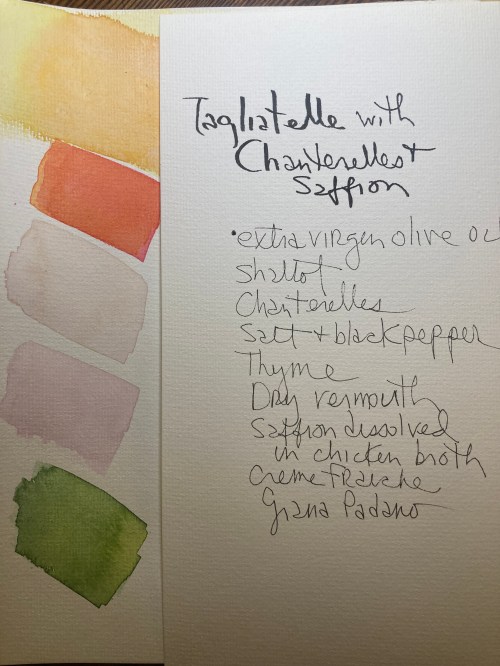 Tagliatelle with
Chanterelles +
Saffron
• extra virgin olive oil
Shallot
Chanterelles
Salt + black pepper
Thyme
Dry vermouth
Saffron dissolved
in chicken broth
Creme Fraiche
Grana Padano